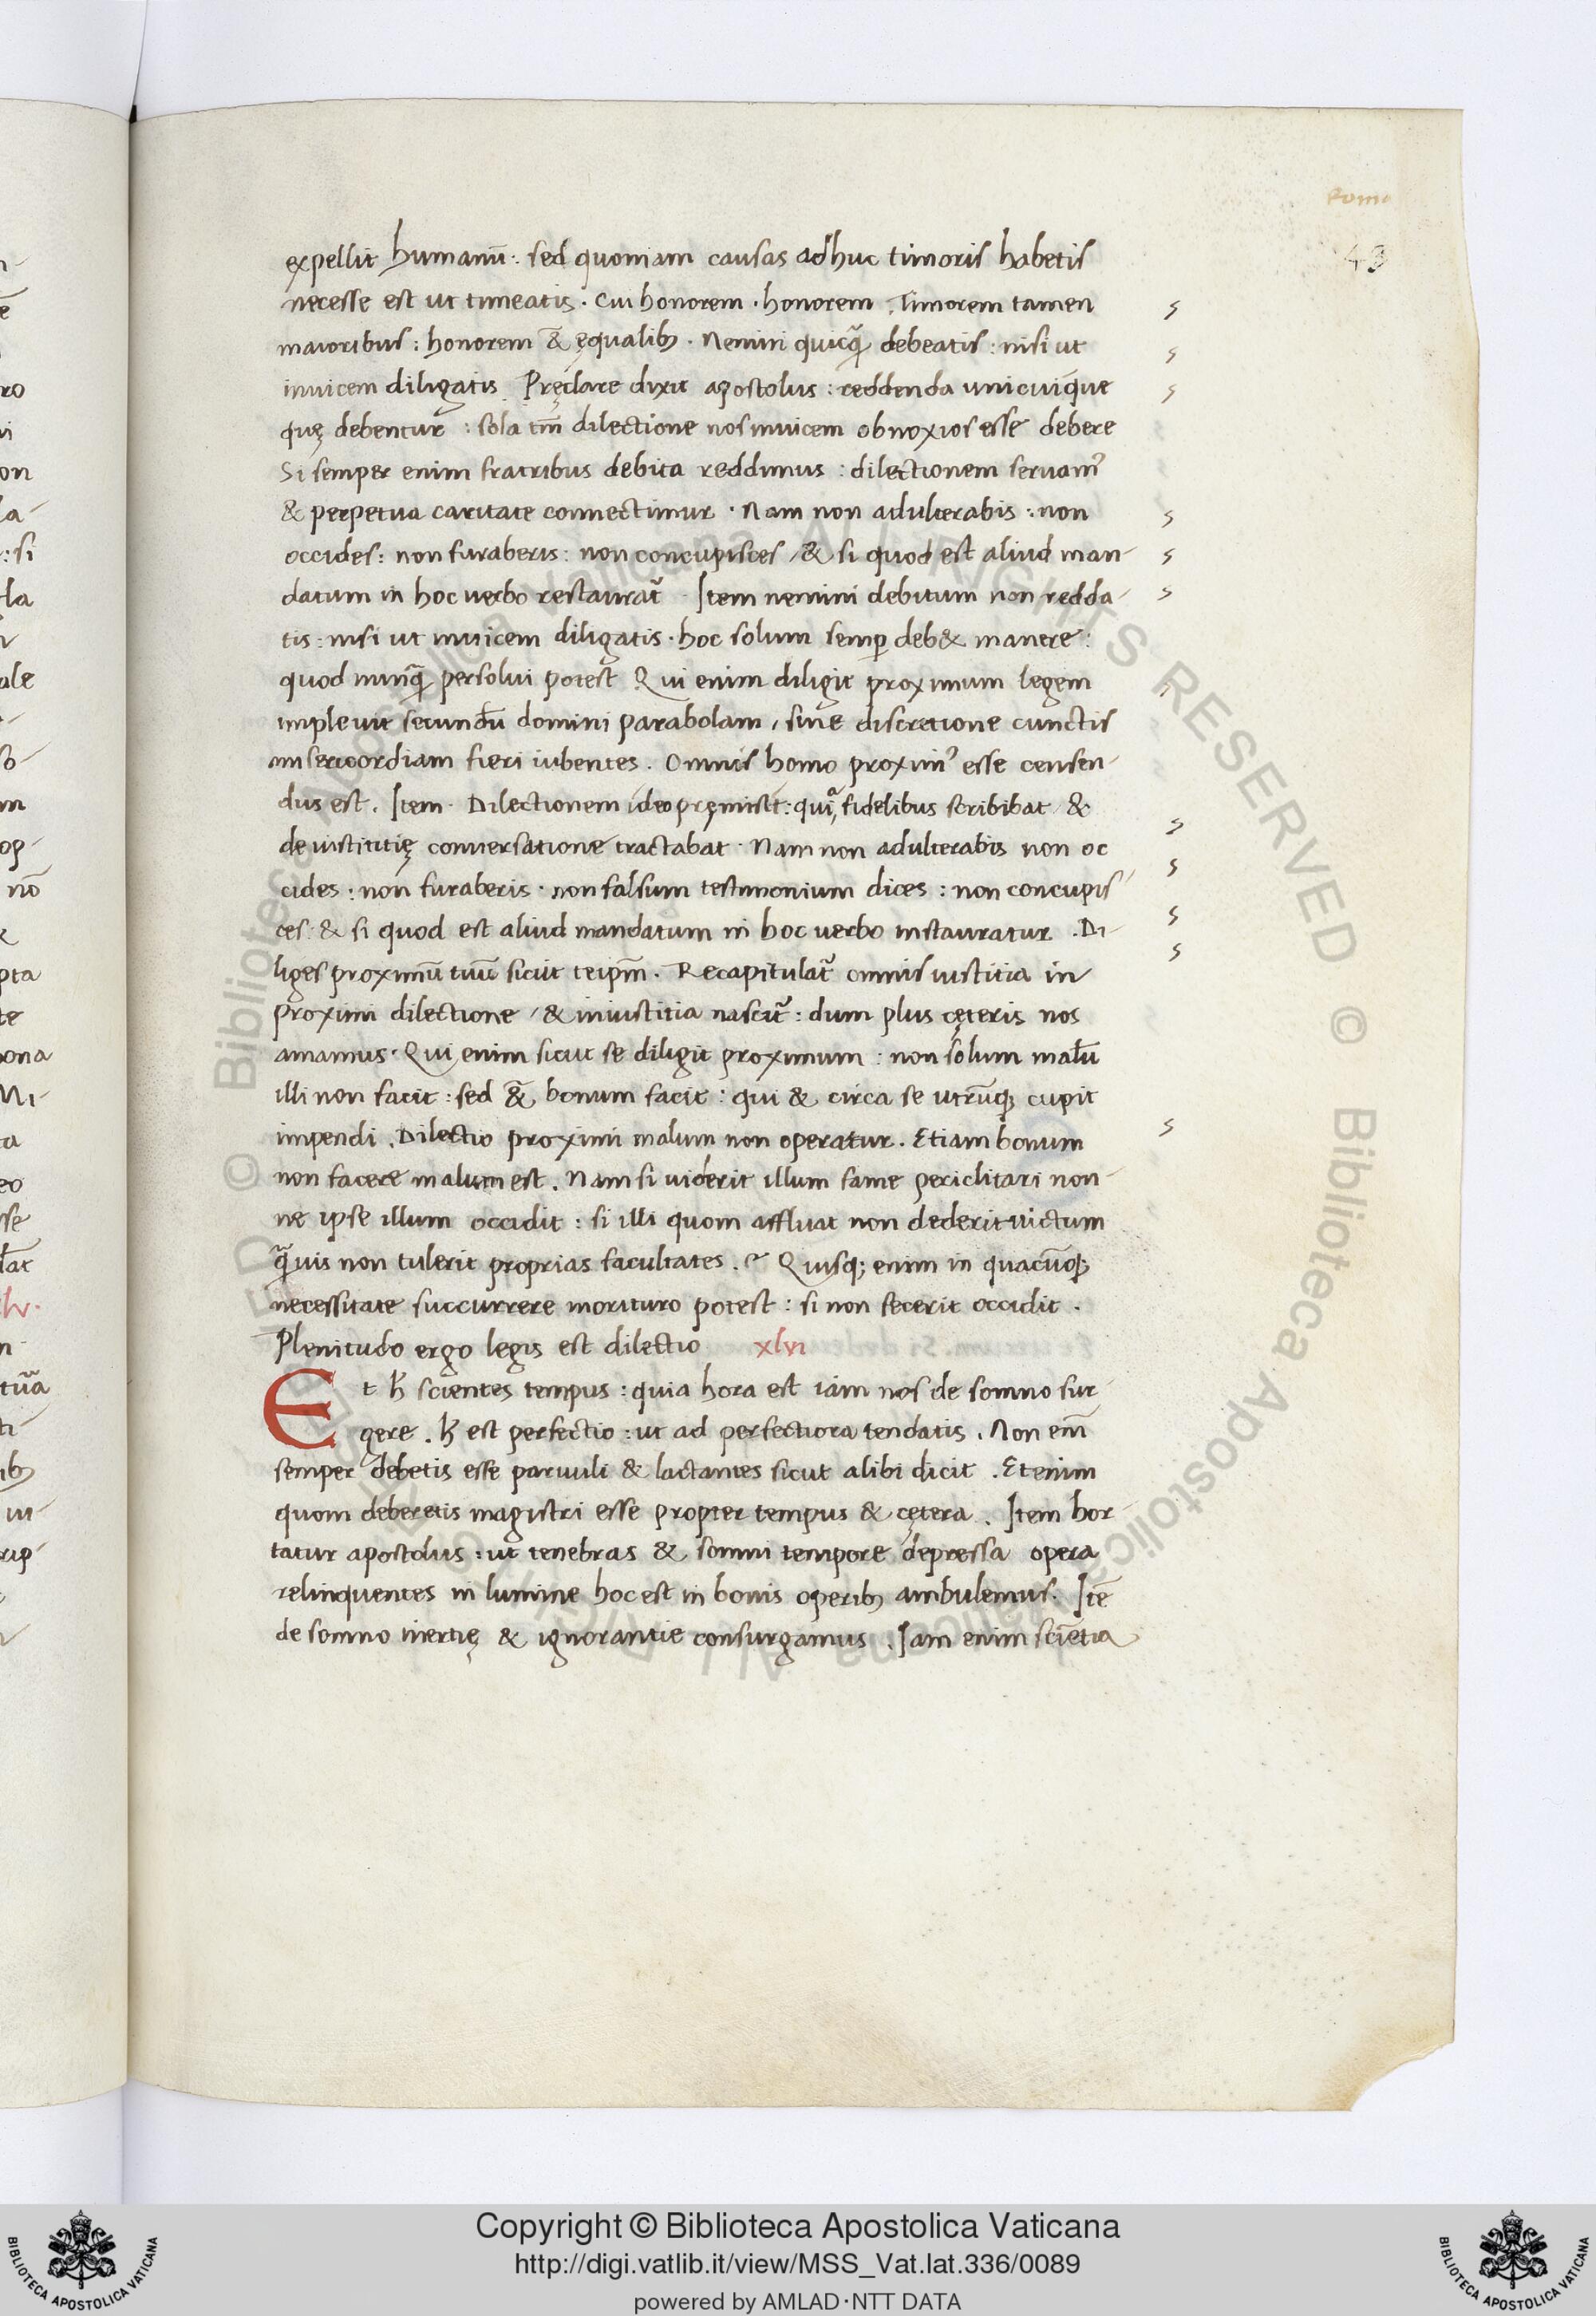 Romo
43
expellit humanū: sed quoniam causas adhuc timoris habetis
necesse est ut timeatis. Cui honorem. honorem. Timorem tamen
maioribus: honorem & ęqualib;. Nemini quicq̃ debeatis: nisi ut
inuicem diligatis. Pręclare dixit apostolus: reddenda unicuique
quę debentur: sola tm̄ dilectione nos inuicem obnoxios esse debere
Si semper enim fratribus debita reddimus: dilectionem seruam᾽
& perpetua caritate connectimur. Nam non adulterabis: non
occides: non furaberis: non concupisces, & si quod est aliud man-
datum in hoc uerbo restaurat᾽ Item nemini debitum non redda-
tis: nisi ut inuicem diligatis. hoc solum semp̱ deb& manere:
quod nunq̃ persolui potest Qui enim diligit proximum legem
impleuit secundū domini parabolam, sine discretione cunctis
misericordiam fieri iubentes. Omnis homo proxim᾽ esse censen-
dus est. Item. Dilectionem ideo pręmisit: quia, fidelibus scribibat &
de iustitię conuersatione tractabat. Nam non adulterabis non oc
cides: non furaberis. non falsum testimonium dices: non concupis-
ces: & si quod est aliud mandatum in hoc uerbo instauratur. Di-
liges proximū tuū sicut teipm̄. Recapitulat᾽ omnis iustitia in
proximi dilectione, & iniustitia nascit᾽: dum plus cęteris nos
amamus. Qui enim sicut se diligit proximum: non solum malū
illi non facit: sed &̄ bonum facit: qui & circa se utrūq; cupit
impendi. Dilectio proximi malum non operatur. Etiam bonum
non facere malum est. Nam si uiderit illum fame periclitari non-
ne ipse illum occidit: si illi quom affluat non dederit uictum
q̃uis non tulerit proprias facultates. Quisq; enim in quacūq;
necessitate succurrere morituro potest: si non fecerit occidit.
Plenitudo ergo legis est dilectio xlvi
Et h̄ scientes tempus: quia hora est iam nos de somno sur-
gere. h̄ est perfectio: ut ad perfectiora tendatis. Non em̄
semper debetis esse paruuli & lactantes sicut alibi dicit. Etenim
quom deberetis magistri esse propter tempus & cętera. Item hor-
tatur apostolus: ut tenebras & somni tempore depressa opera
relinquentes in lumine hoc est in bonis operib; ambulemus. Itē
de somno inertię & ignorantie consurgamus. Iam enim sciētia
Copyright © Biblioteca Apostolica Vaticana
http://digi.vatlib.it/view/MSS_Vat.lat.336/0089
powered by AMLAD·NTT DATA